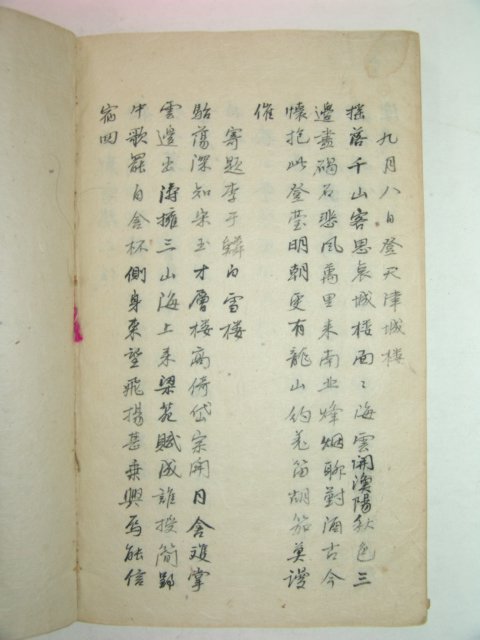 九月八日登天津城楼
搖落千山客思哀城楼面〻海雲開漁陽秋色三
邊盡碣石悲風萬里来南北烽烟聊對酒古今
懷抱此登臺明朝更有龍山約羌笛胡笳莫謾
催
寄題李于鱗白雪楼
駘蕩深知宋玉才層楼高倚岱宗開月含雙掌
雲邊出濤擁三山海上来梁苑賦成誰授簡郢
中歌罷自含杯側身東望飛揚甚乗興焉能信
宿回